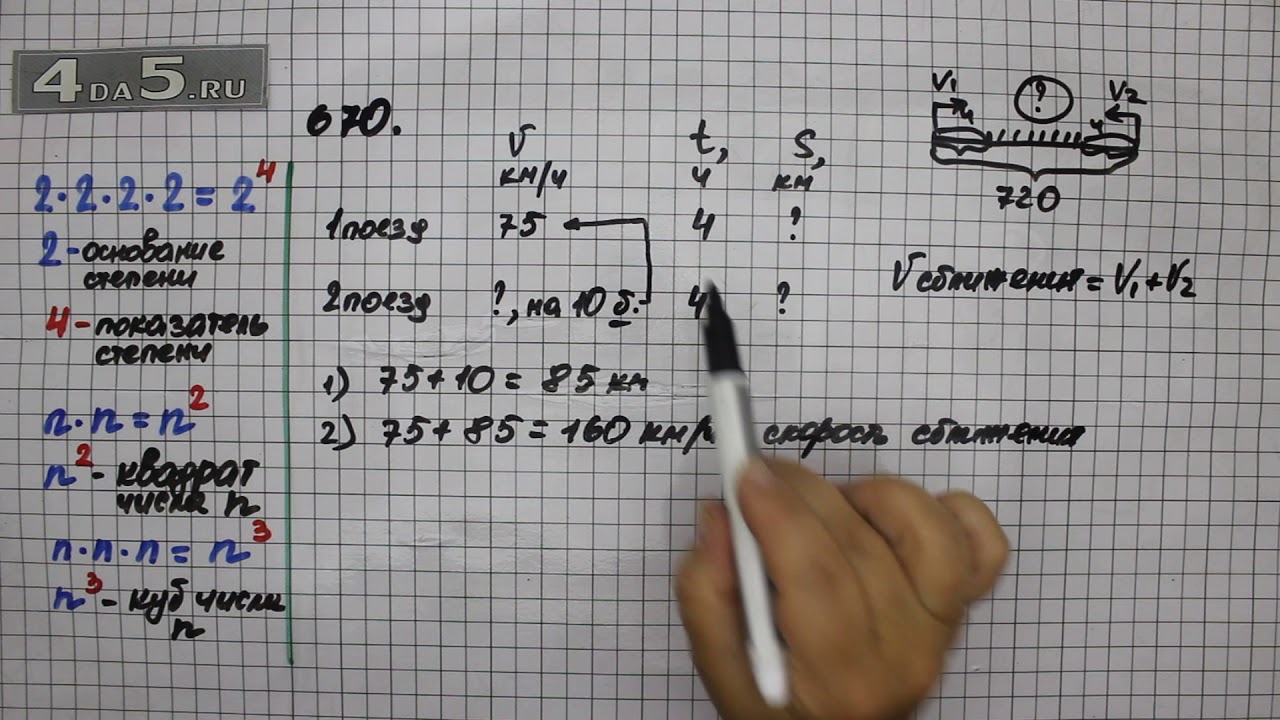 4DA5.RU
670.
2·2·2·2 = 2⁴
2 - основание
степени
4 - показатель
степени
n·n = n²
n² - квадрат
числа n
n·n·n = n³
n³ - куб числа
n
V t, S,
км/ч ч км
1 поезд 75 4 ?
2 поезд ?, на 10 б. 4 ?
1) 75 + 10 = 85 км
2) 75 + 85 = 160 км/ скорость сближения
V₁ ? V₂
4 4
720
V сближения = V₁ + V₂